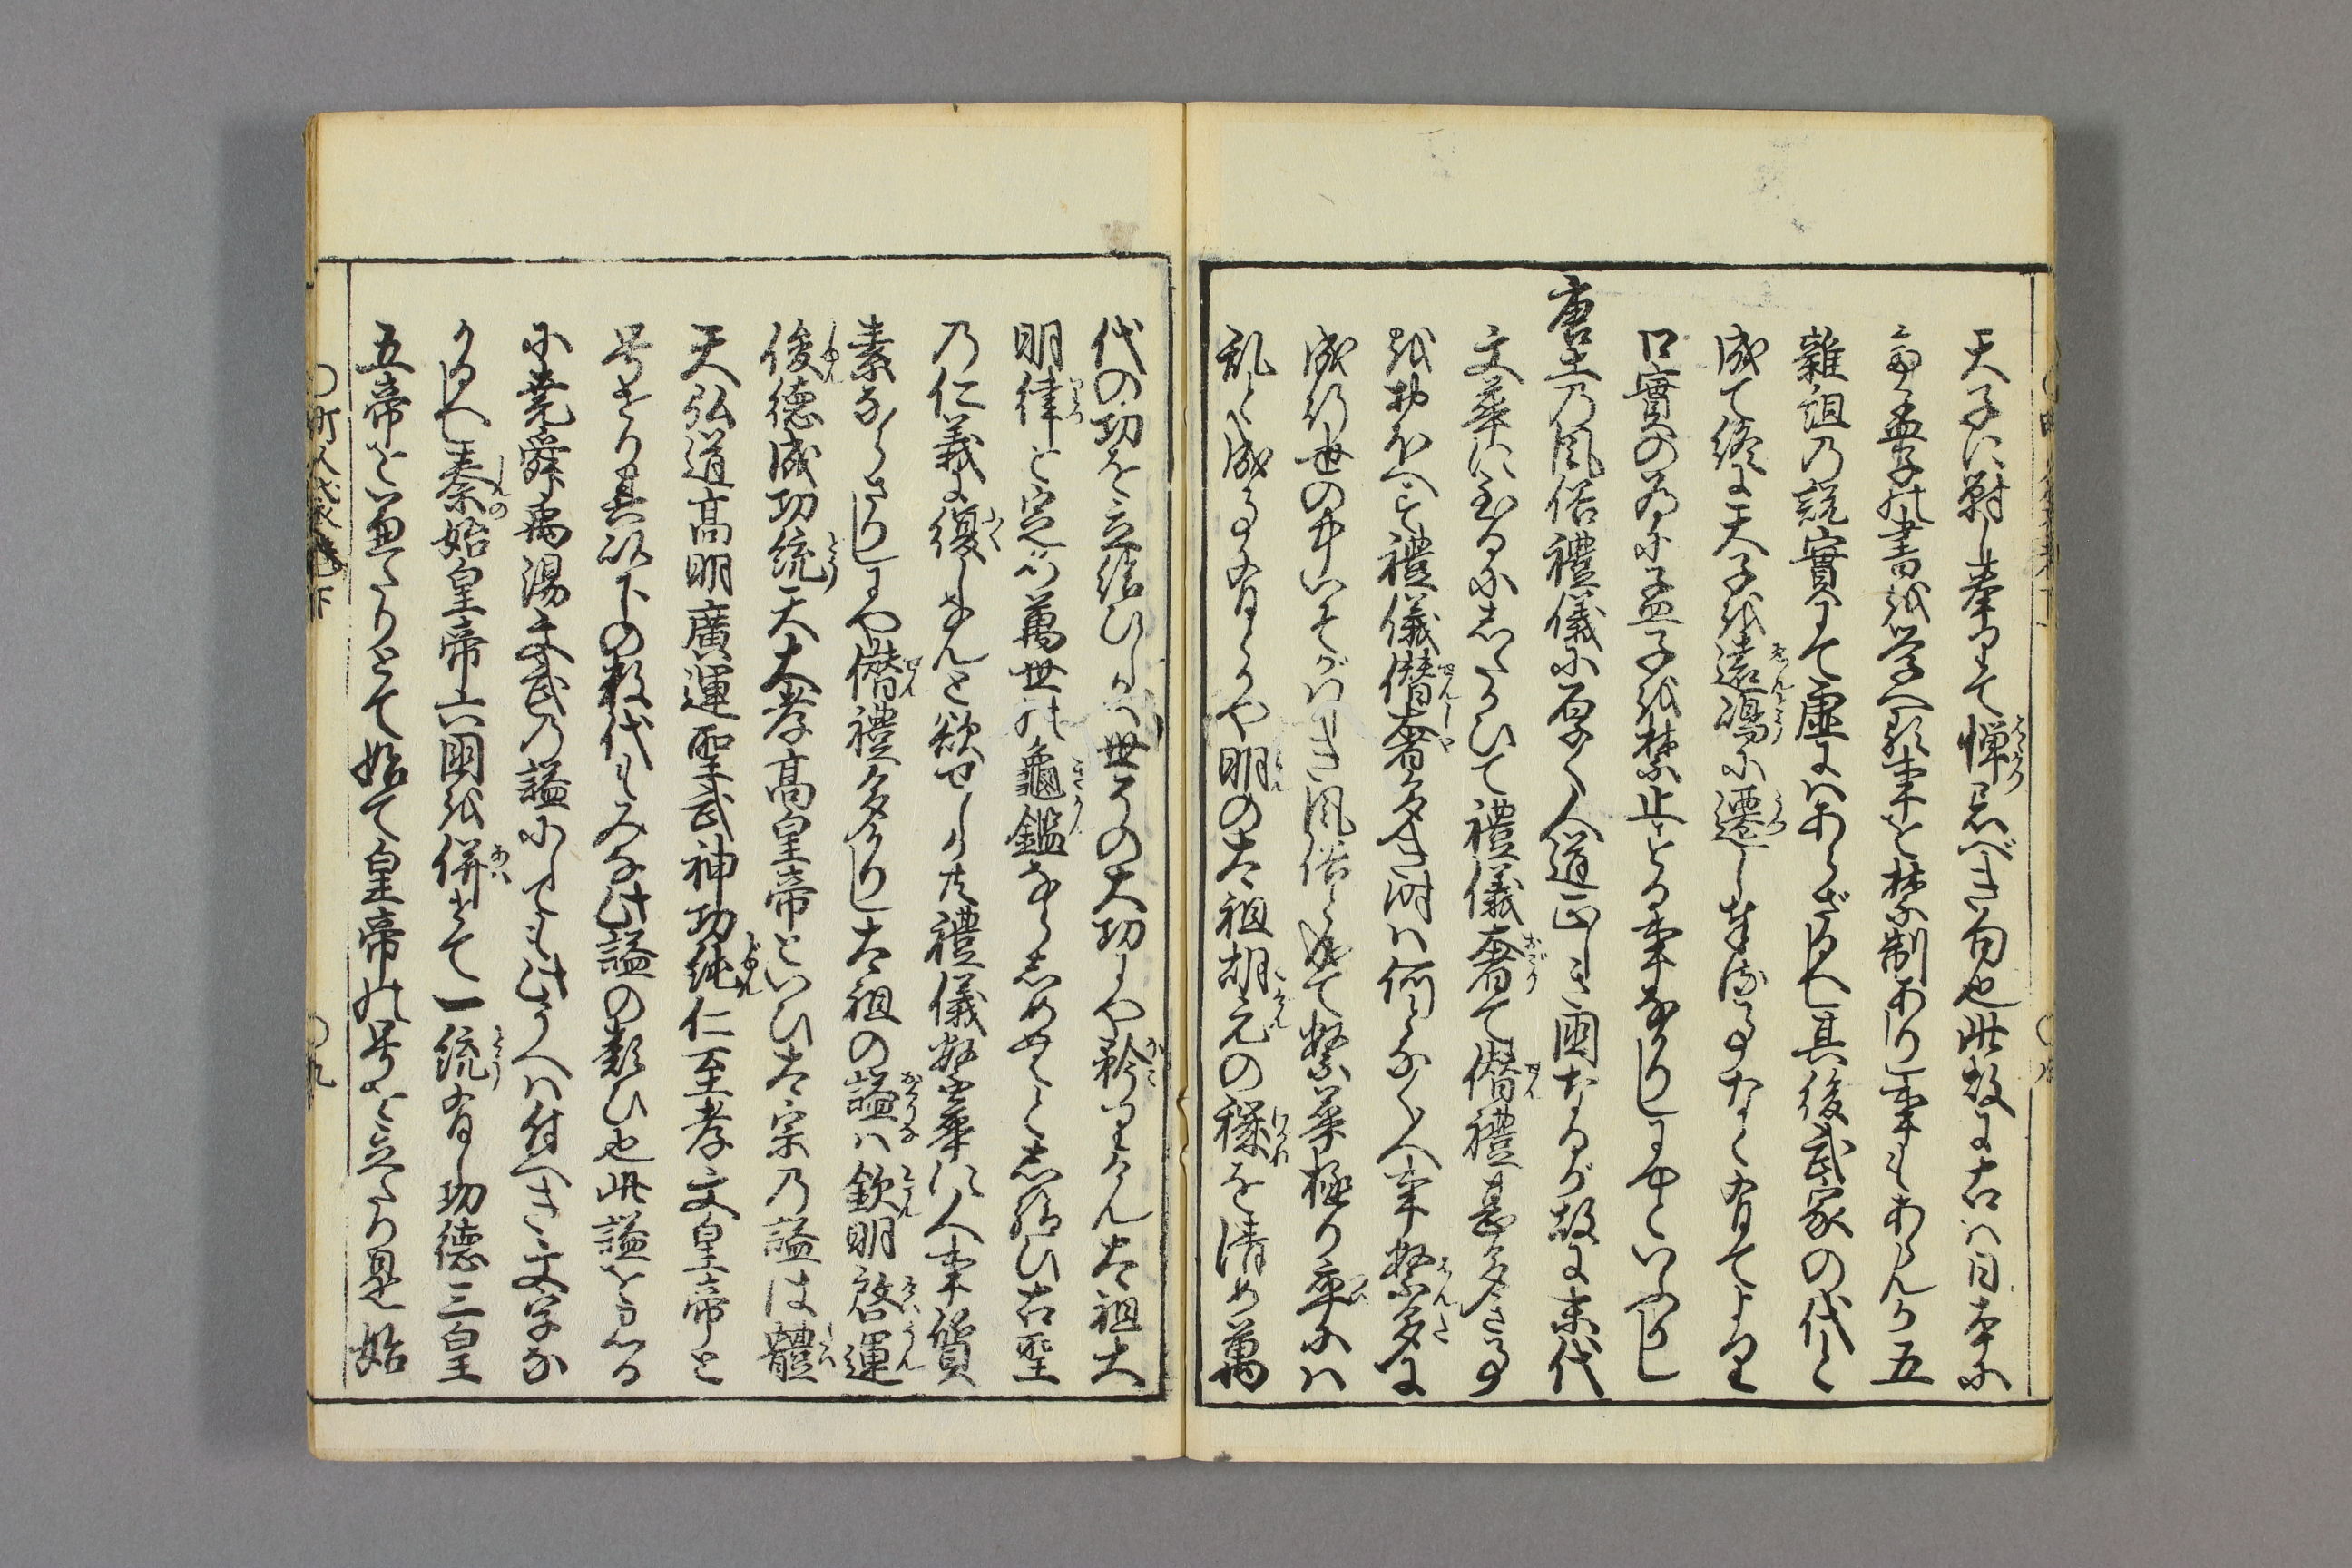 天子に對し奉りて憚忌べき句也此故に古は日本に
て孟子の書を学べる事を禁制ありし事もあらんか五
雜俎の説實にて虚にはあらざるべし其後武家の代と
成て終に天子を遠嶋に遷し奉る事なく有てより
口實の為に孟子を禁止する事なかりしにやといふかし
唐土の風俗禮儀に原く人道正しき国なるが故に末代
文華に至るにしたがひて禮儀奢て僭禮甚多き事
をおぼへず禮儀僭奢多き時は何となく人事繁多に
成行世の中いそがはしき風俗と成て繁華極り卒には
乱と成る事有とかや明の太祖胡元の穢を清め萬
代の功を立給ひしかば世々の大功にや矜りけん太祖大
明律を定めて萬世の龜鑑ならしめんとし給ひ古聖
の仁義に復しめんと欲せしか共禮儀繁華に人事質
素ならざりしにや僭禮多かりし太祖の謚は欽明啓運
俊德成功統天大孝高皇帝といひ太宗の謚は體
天弘道高明廣運聖武神功純仁至孝文皇帝と
号せり其以下の數代もみな此謚の類ひ也此謚を見る
に堯舜禹湯文武の謚にしても此うへは付へき文字な
かるべし秦始皇帝六国を併せて一統有し功德三皇
五帝を兼たりとて始て皇帝の号を立たり是始
〇町人囊巻下
〇九